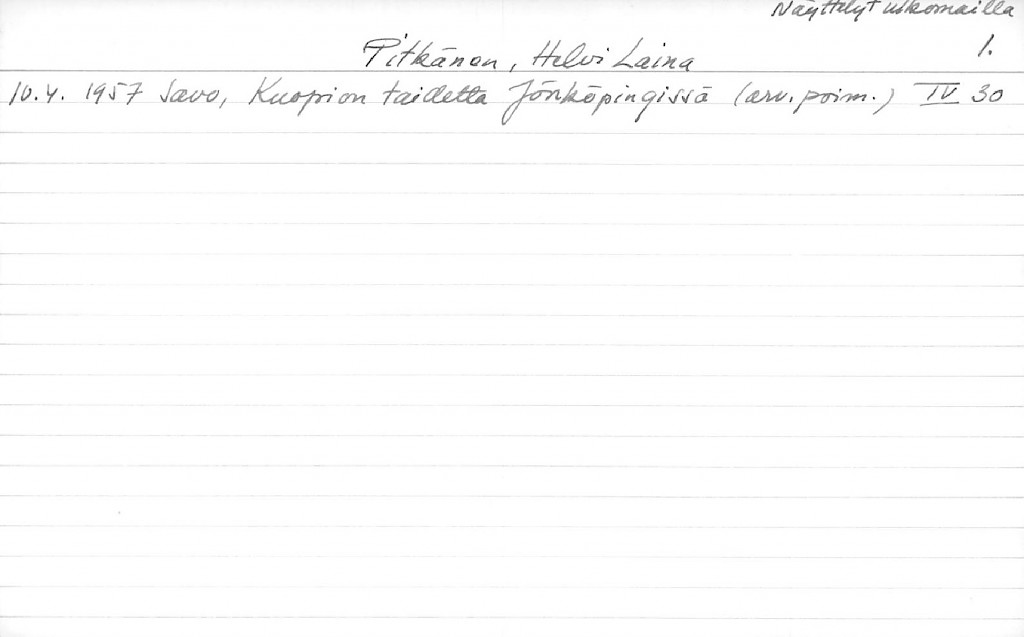 Näyttelyt ulkomailla
1.
Pitkänen, Helvi Laina
10.4. 1957 Savo, Kuopion taidetta Jönköpingissä (arv. poim.) IV 30